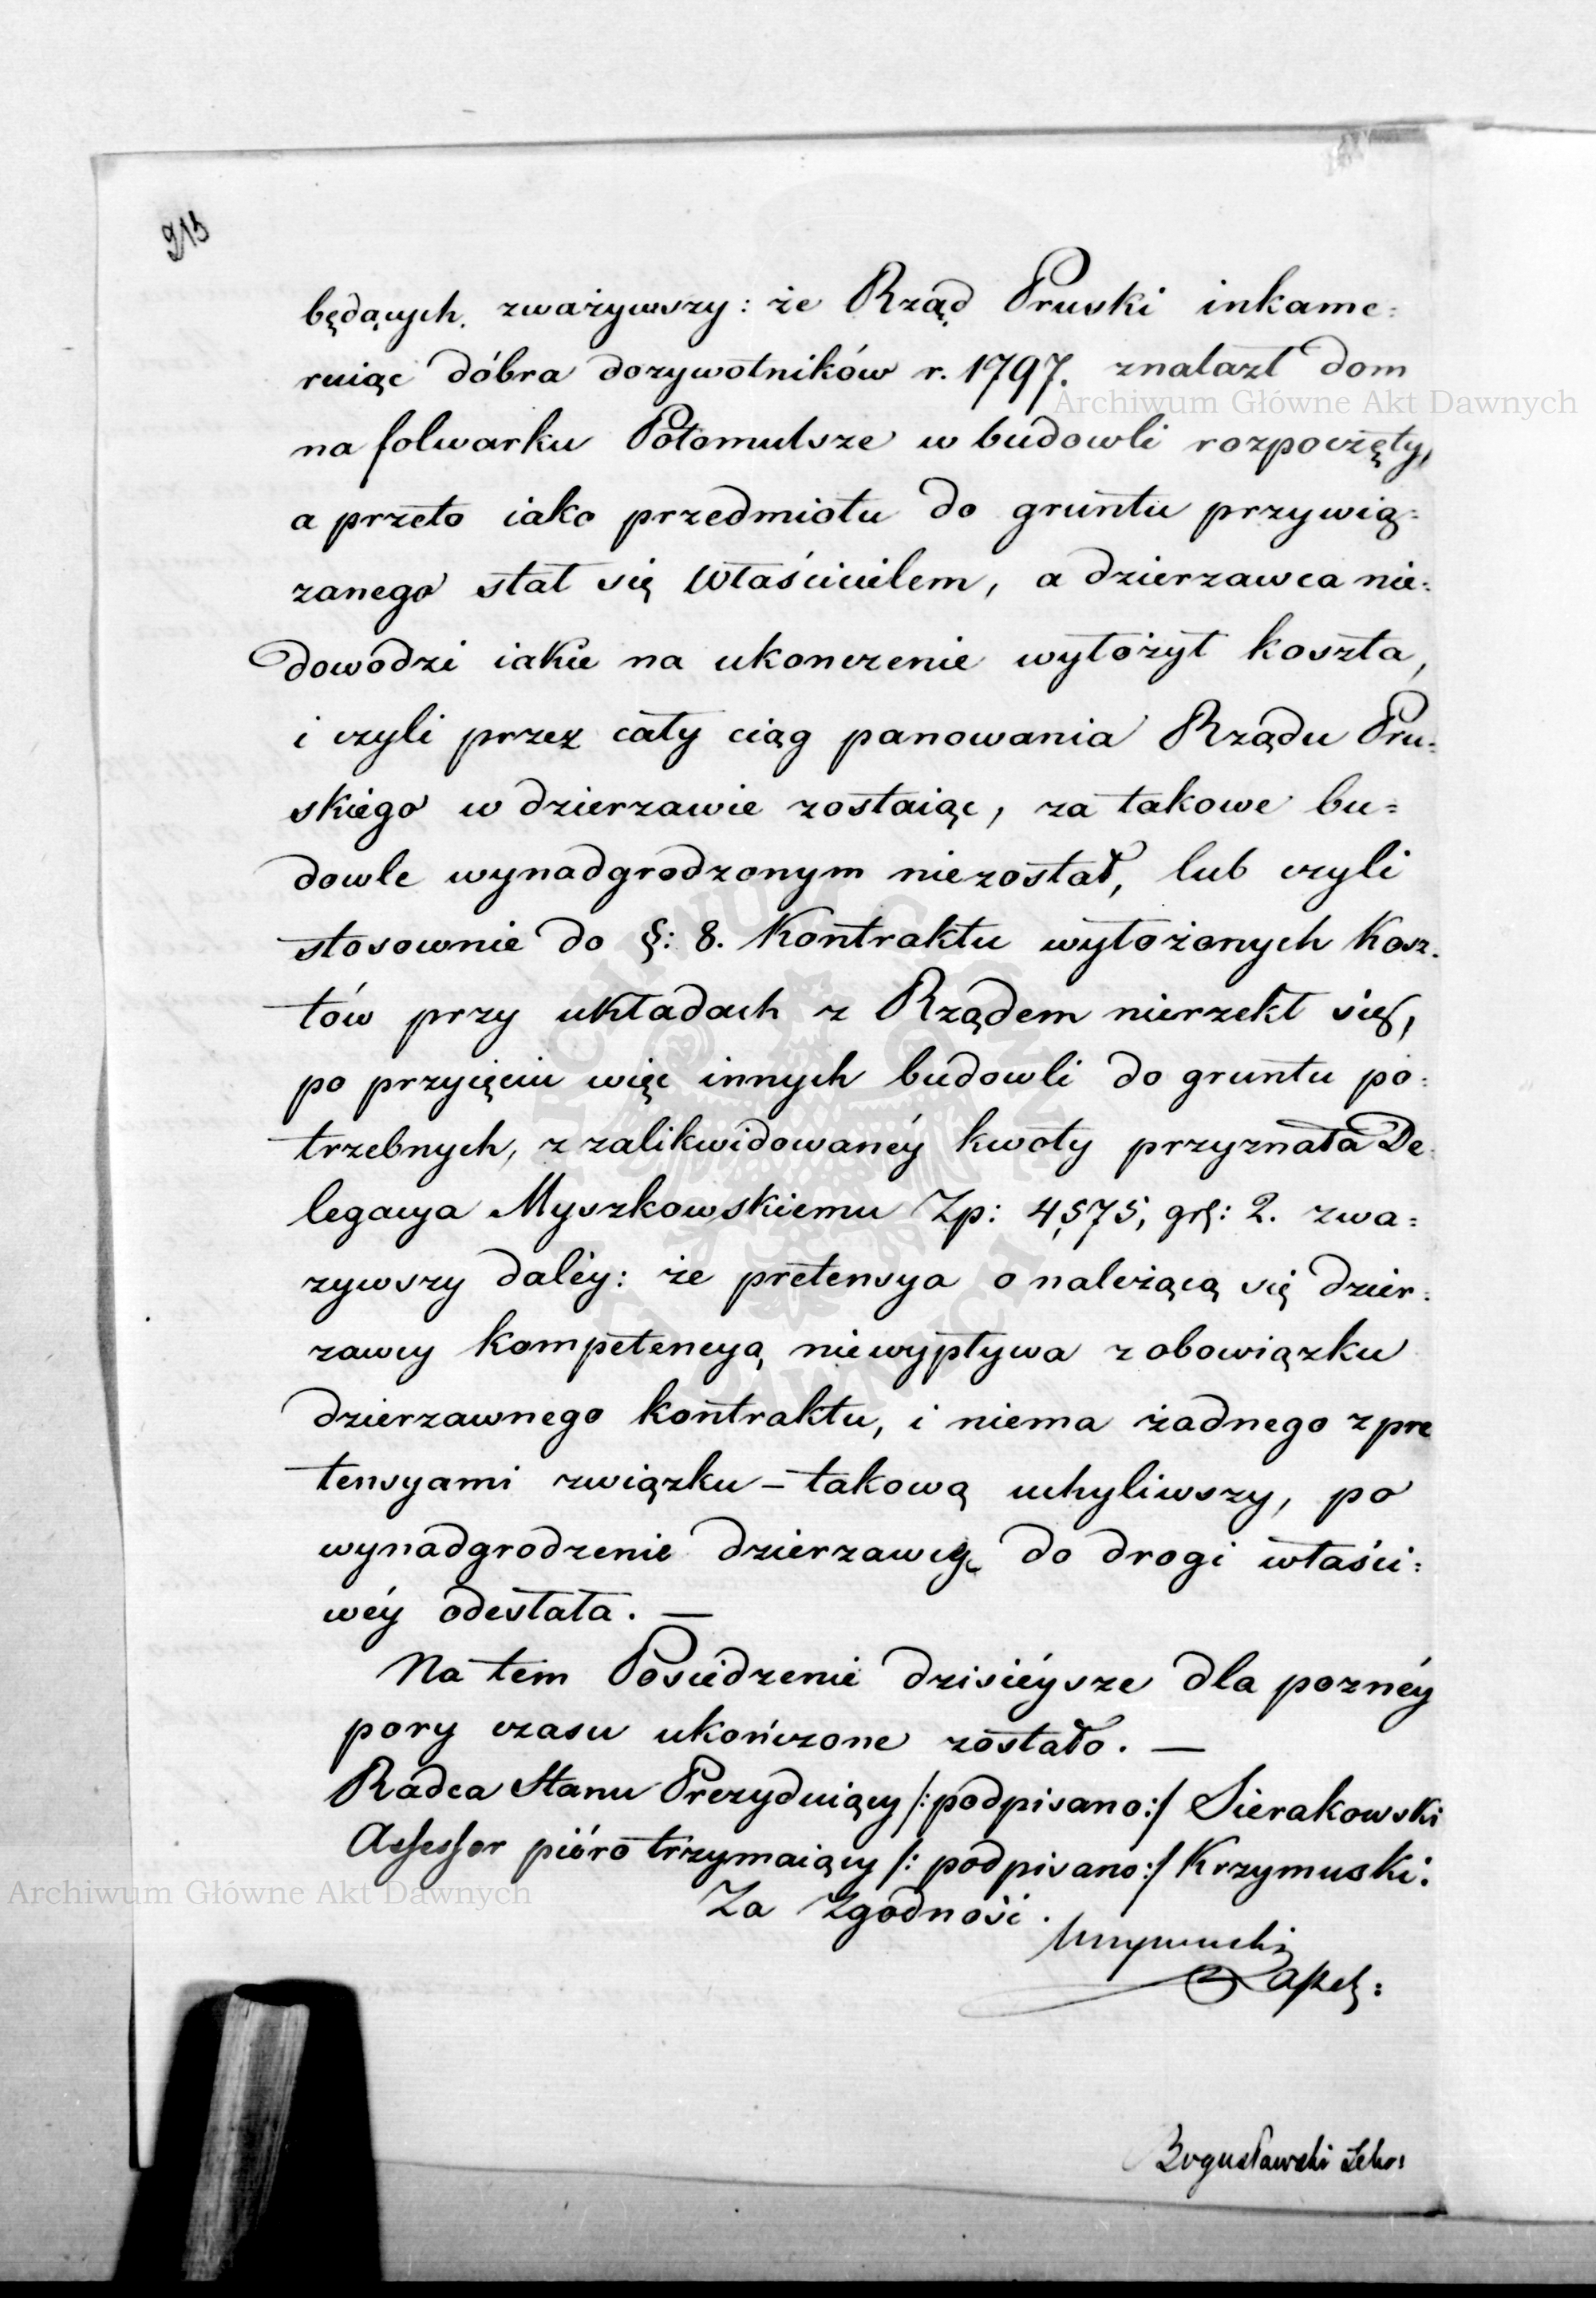 213
będących. zważywszy: że Rząd Pruski inkame:
ruiąc dóbra dozywotników r. 1797. znalazł dom
Archiwum Główne Akt Dawnych
na folwarku Potomulsze w budowli rozpoczęty,
a przeto iako przedmiotu do gruntu przywią:
zanego stał się Właścicielem, a dzierzawca nie:
dowodzi iakie na ukonczenie wyłożył koszta,
i czyli przez cały ciąg panowania Rządu Pru:
skiego w dzierzawie zostaiąc, za takowe bu=
dowle wynadgrodzonym niezostał, lub czyli
stosownie do §: 8. Kontraktu wyłożonych Kosz:
tów przy układach z Rządem nierzekł się,
po przyięciu więc innych budowli do gruntu po:
trzebnych, z zalikwidowanéy kwoty przyznała De:
legacya Myszkowskiemu Zp: 4,575, gr: 2. zwa:
zywszy daléy: że pretensya o należącą się dzier:
zawcy kompetencyą niewypływa z obowiązku
dzierzawnego kontraktu, i niema żadnego z pre
tensyami związku – takową uchyliwszy, po
wynadgrodzenie dzierzawcę do drogi właści:
wéy odesłała. —
Na tem Posiedzenie dzisiéysze dla poznéy
pory czasu ukończone zostało. —
Radca Stanu Prezyduiący /: podpisano:/ Sierakowski
Assessor pióro trzymaiący /: podpisano:/ Krzymuski.
Archiwum Główne Akt Dawnych
Za Zgodność.
Bogusławski Sekr: